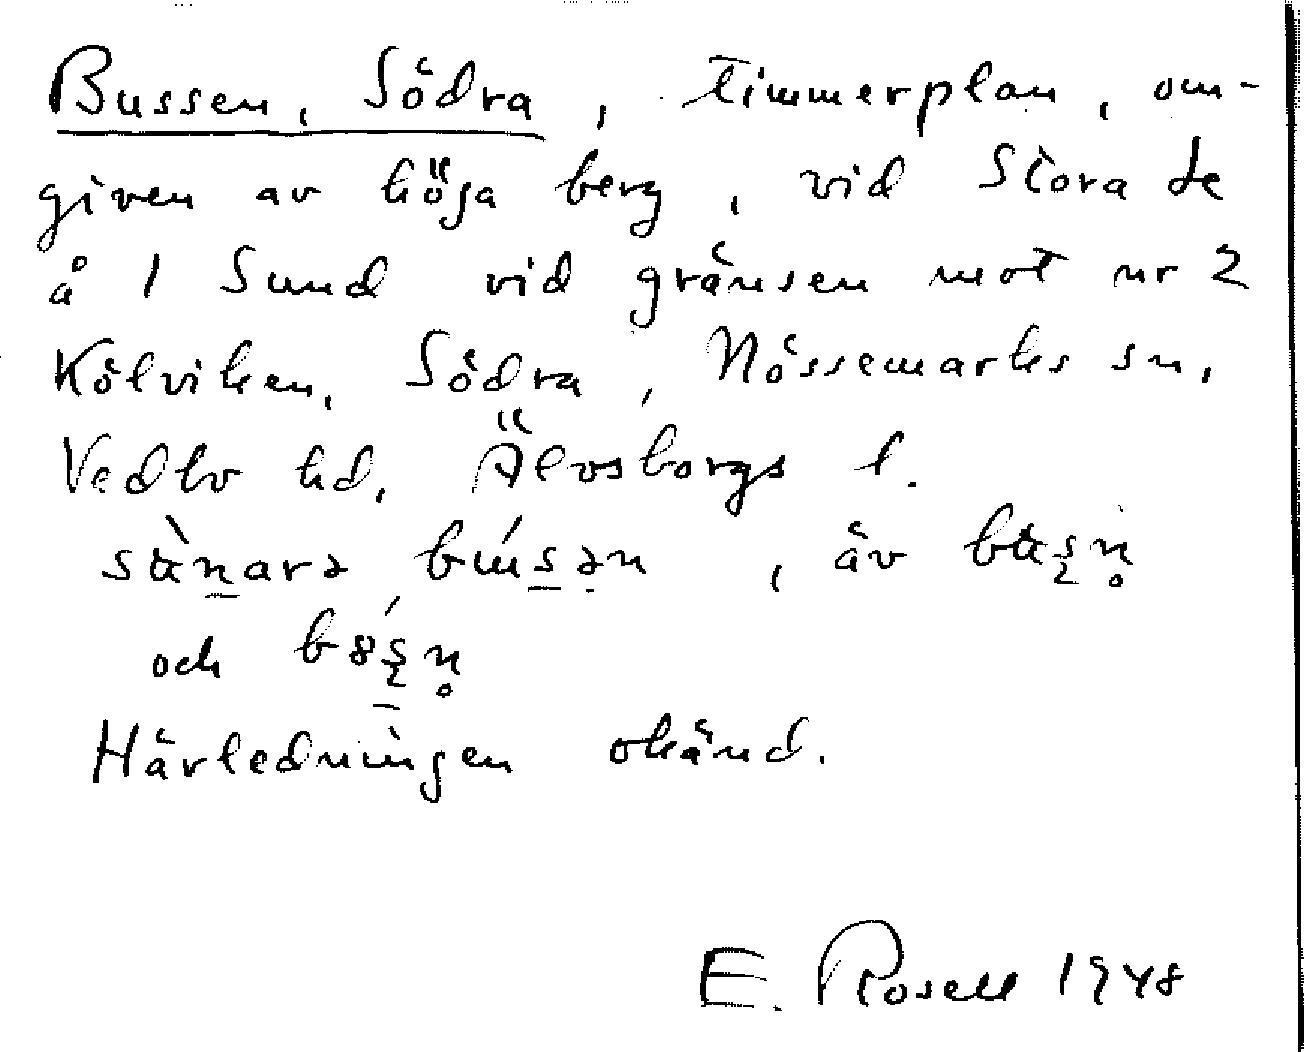 Bussen, Södra, timmerplan, om-
given av höga berg, vid Stora Le
å 1 Sund vid gränsen mot nr 2
Kölviken, Södra, Nössemarks sn,
Vedbo hd, Älvsborgs l.
, äv
och
Härledningen okänd.
E. Rosell 1948